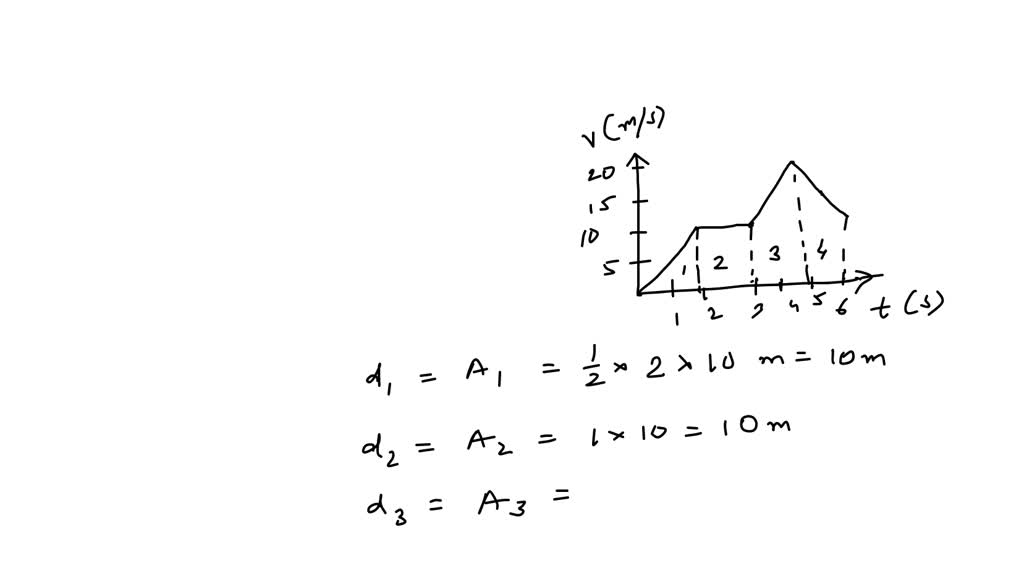 v (m/s)
20
15
10
5
1 2 3 4
1 2 3 4 5 6 t (s)
d₁ = A₁ = 1/2 × 2 × 10 m = 10 m
d₂ = A₂ = 1 × 10 = 10 m
d₃ = A₃ =